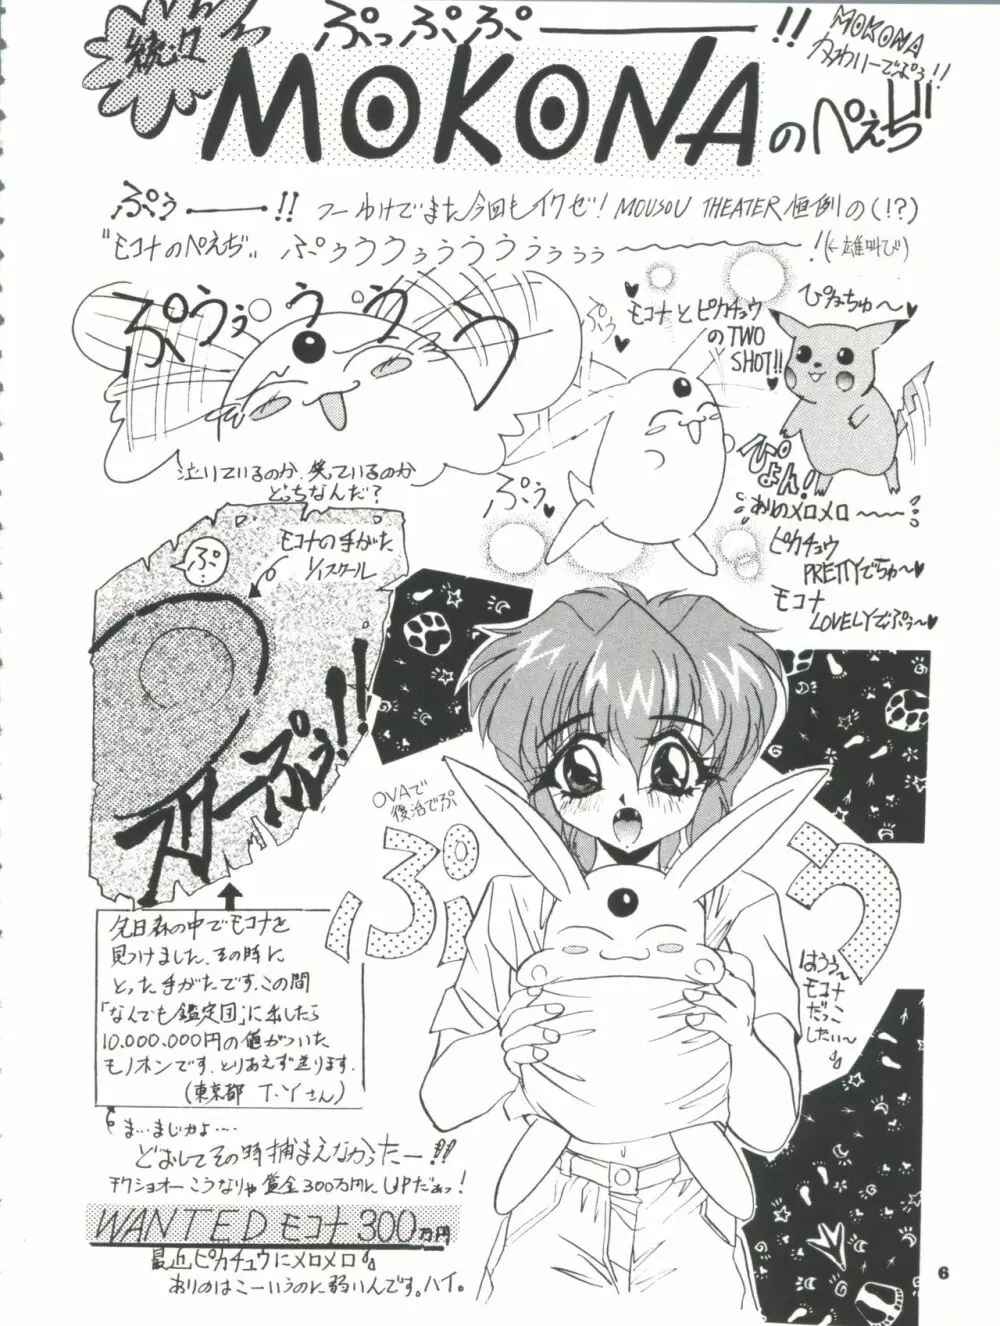 続々
ぷっぷぷ────!!
MOKONA
かわいーでぷぅ!!
MOKONAのぺえぢ!!
ぷぅ───!! つーわけでまた今回もイクゼ! MOUSOU THEATER 恒例の(!?)
"モコナのぺえぢ" ぷぅぅうぅううぅぅぅ〜〜〜〜!(←雄叫び)
ぷうぅううう
泣いているのか、笑っているのか
どっちなんだ?
ぷぅ
モコナとピカチュウ
のTWO
SHOT!!
ぴかちゅ〜♥
ぷぅ
ぴょん!
ありのメロメロ〜〜
ピカチュウ
PRETTYでちゅ〜♥
モコナ
LOVELYでぷぅ〜♥
モコナの手がた
1/1スケール
ぷ…
スターぷぅ!!
OVAで
復活でぷ
ぷう
はうぅ〜
モコナ
だっこ
したい〜
先日森の中でモコナを
見つけました。その時に
とった手がたです。この間
「なんでも鑑定団」に出したら
10.000.000円の値がついた
モノホンです。とりあえず送ります。
(東京都 T・Yさん)
ま…まじかよ…
どおしてその時捕まえなかったー!!
チクショオーこうなりゃ賞金300万円にUPだぁっ!
WANTED モコナ 300万円
最近ピカチュウにメロメロ
ありのはこーいうのに弱いんです。ハイ。
6